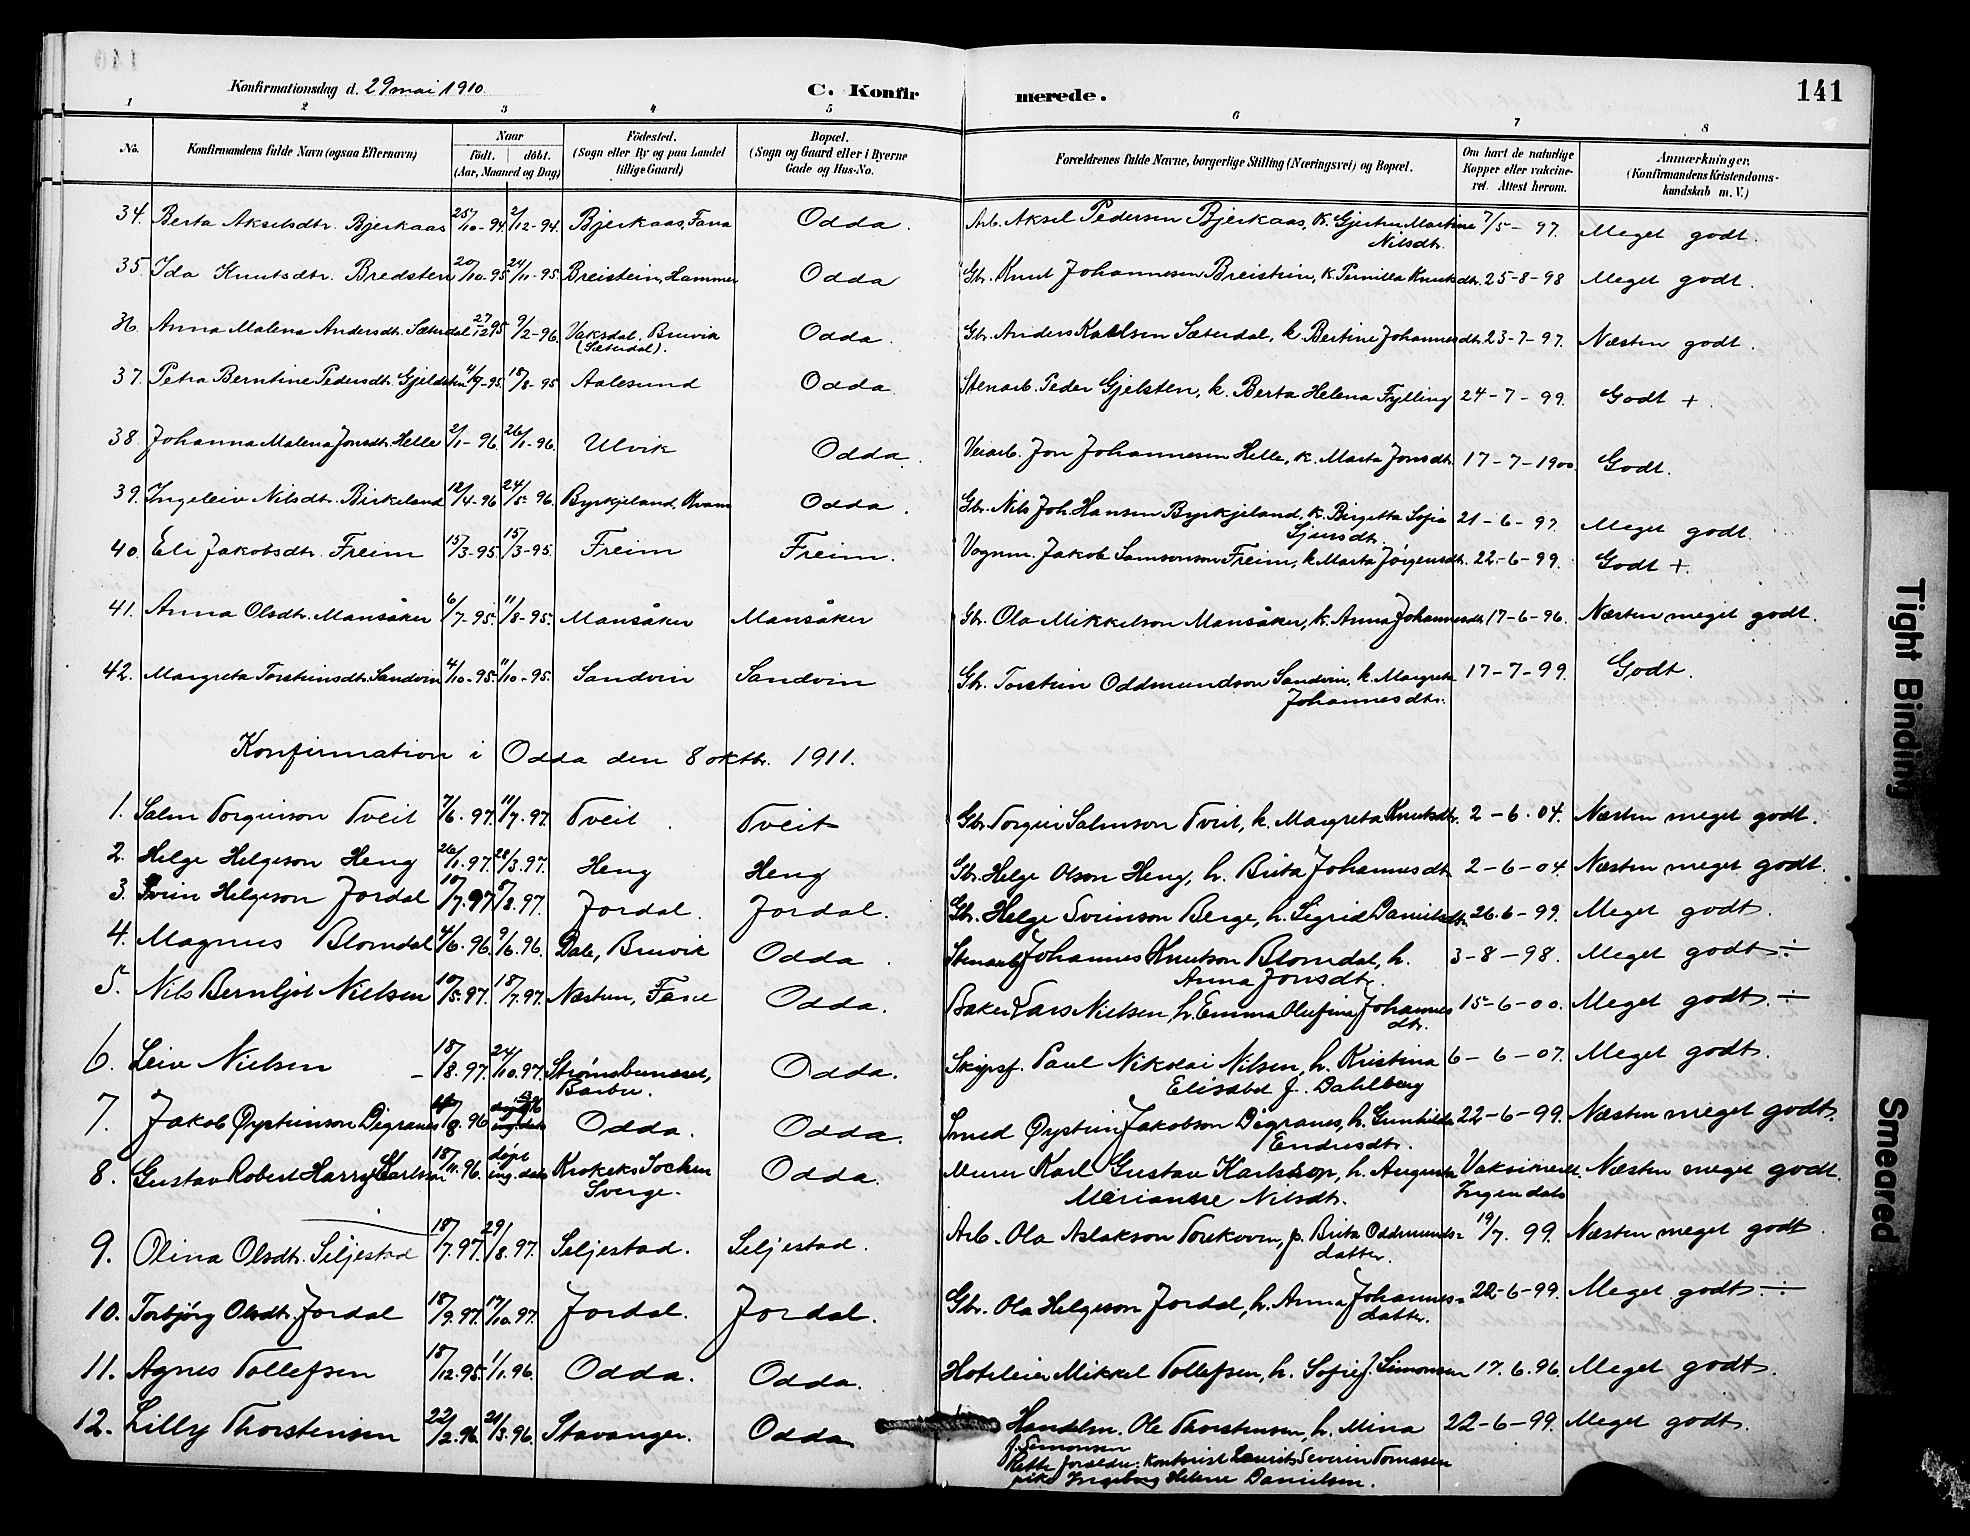 Konfirmationsdag d. 29 mai 1910 C. Konfirmerede. 141
1 2 3 4 5 6 7 8
No. Konfirmandens fulde Navn (ogsaa Efternavn) Naar født. døbt. (Aar, Maaned og Dag) Fødested. (Sogn eller By og paa Landet tillige Gaard) Bopæl. (Sogn og Gaard eller i Byerne Gade og Hus-No. Forældrenes fulde Navne, borgerlige Stilling (Næringsvei) og Bopæl. Om havt de naturlige Kopper eller vakcineret. Attest herom. Anmærkninger. (Konfirmandens Kristendomskundskab m. V.)
34. Berta Akselsdtr. Bjerkaas 25/10-94. 2/12-94. Bjerkaas, Fana Odda. Arb. Aksel Pedersen Bjerkaas, k. Gjertru Martine 7/5-97. Meget godt.
Nilsdtr.
35. Ida Knutsdtr. Bredsten 20/10-95 24/11-95. Breistein, Hammer Odda Gbr. Knut Johannesen Breistein, k. Pernilla Knutsdtr. 25-8-98 Meget godt.
36. Anna Malena Andersdt. Sæterdal 27/12 95 9/2-96. Vaksdal, Bruvik Odda. Gbr. Anders Karlsen Sæterdal, k. Bertine Johannesdt. 23-7-97. Næsten godt.
(Sæterdal).
37. Petra Berntine Pedersdt. Gjeldsten 4/7-95. 18/8-95 Aalesund Odda Stenarb. Peder Gjelsten, k. Berta Helena Fylling 24-7-99. Godt +.
38. Johanna Malena Jonsdt. Helle 2/1-96. 26/1-96. Ulvik Odda. Veiarb. Jon Johannesen Helle, k. Marta Jonsdt. 17-7-1900 Godt.
39. Ingeleiv Nilsdtr. Birkeland 12/4-96 24/5-96. Byrkjeland, Kvam Odda. Gbr. Nils Joh. Hansen Byrkjeland, k. Birgitta Sofia 21-6-97 Meget godt.
Sjursdtr.
40. Eli Jakobsdtr. Freim 15/3-95. 15/3-95. Freim Freim. Vognm. Jakob Samsonson Freim, k. Marta Jørgensdt. 22-6-99. Godt +.
41. Anna Olsdtr. Mansåker 6/7-95. 11/8-95. Mansåker Mansåker Gbr. Ola Mikkelson Mansåker, k. Anna Johannesdt. 17-6-96. Næsten meget godt.
42. Margreta Torsteinsdt. Sandvin 4/10-95. 11/10-95. Sandvin Sandvin Gbr. Torstein Oddmundson Sandvin, k. Margreta 17-7-99. Godt.
Johannesdtr.
Konfirmation i Odda den 8 oktbr. 1911.
1. Salm Torgeirson Tveit 7/6.97. 11/7.97. Tveit. Tveit Gbr. Torgeir Salmson Tveit, h. Margreta Knutsdt. 2-6.04. Næsten meget godt.
2. Helge Helgeson Heng 26/1.97 28/3.97. Heng Heng Gbr. Helge Olson Heng, h. Brita Johannesdt. 2-6-04 Næsten meget godt.
3. Svein Helgeson Jordal 10/7.97 8/8.97. Jordal. Jordal. Gbr. Helge Sveinson Berge, h. Sigrid Danielsdt. 26.6-99. Meget godt.
4. Magnus Blomdal 4/6.96. 9/6.96. Dale, Bruvik Odda. Stenarb. Johannes Knutson Blomdal, h. 3-8-98. Meget godt ÷
Anna Jonsdtr.
5. Nils Berntjot Nielsen 10/5.97. 18/7.97. Næsten, Fane Odda. Baker Lars Nielsen h. Emma Olufine Johannes 15-6-00. Meget godt. ÷
dtr.
6. Leiv Nielsen 18/8.97. 24/10.97. Strømsbuneset, Odda. Skipsf. Paul Nikolai Nilsen, h. Kristina 6-6-07. Meget godt.
Barbu. Elisabet f. Dahlberg
7. Jakob Øysteinson Digranes /8.96 Odda. Odda. Smed Øystein Jakobson Digranes, h. Gunhilda 22-6-99. Næsten meget godt.
Endresdtr.
8. Gustav Robert Harry Karlson 18/11.96. døpt Krokeks Sochen Odda. Murer Karl Gustav Karlsson, h. Augusta Vaksineret. Næsten meget godt.
ing. dato Sverge. Marianne Nilsdt. Ingen dato
9. Olina Olsdt. Seljestad 18/7.97. 29/8.97. Seljestad. Seljestad. Arb. Ola Aslakson Torekoven, p. Brita Oddmunds= 19/7.99. Næsten meget godt.
datter.
10. Torbjørg Olsdt. Jordal 18/9.97. 17/10.97. Jordal. Jordal. Gbr. Ola Helgeson Jordal, h. Anna Johannes= 22-6-99. Meget godt. ÷
datter.
11. Agnes Tollefsen 18/12.95. 1/1.96. Odda. Odda. Hoteleier Mikkel Tollefsen, h. Sofie f. Simonsen 17.6.96. Meget godt.
12. Lilly Thorstensen 22/2.96. 21/3.96. Stavanger. Odda. Handelsm. Ole Thorstensen, h. Mina 22-6-99. Meget godt.
f. Simonsen
Rette forældre: Kontorist Laurits Severin Tomasen
pike Ingeborg Helene Danielsen.
Tight Binding
Smeared